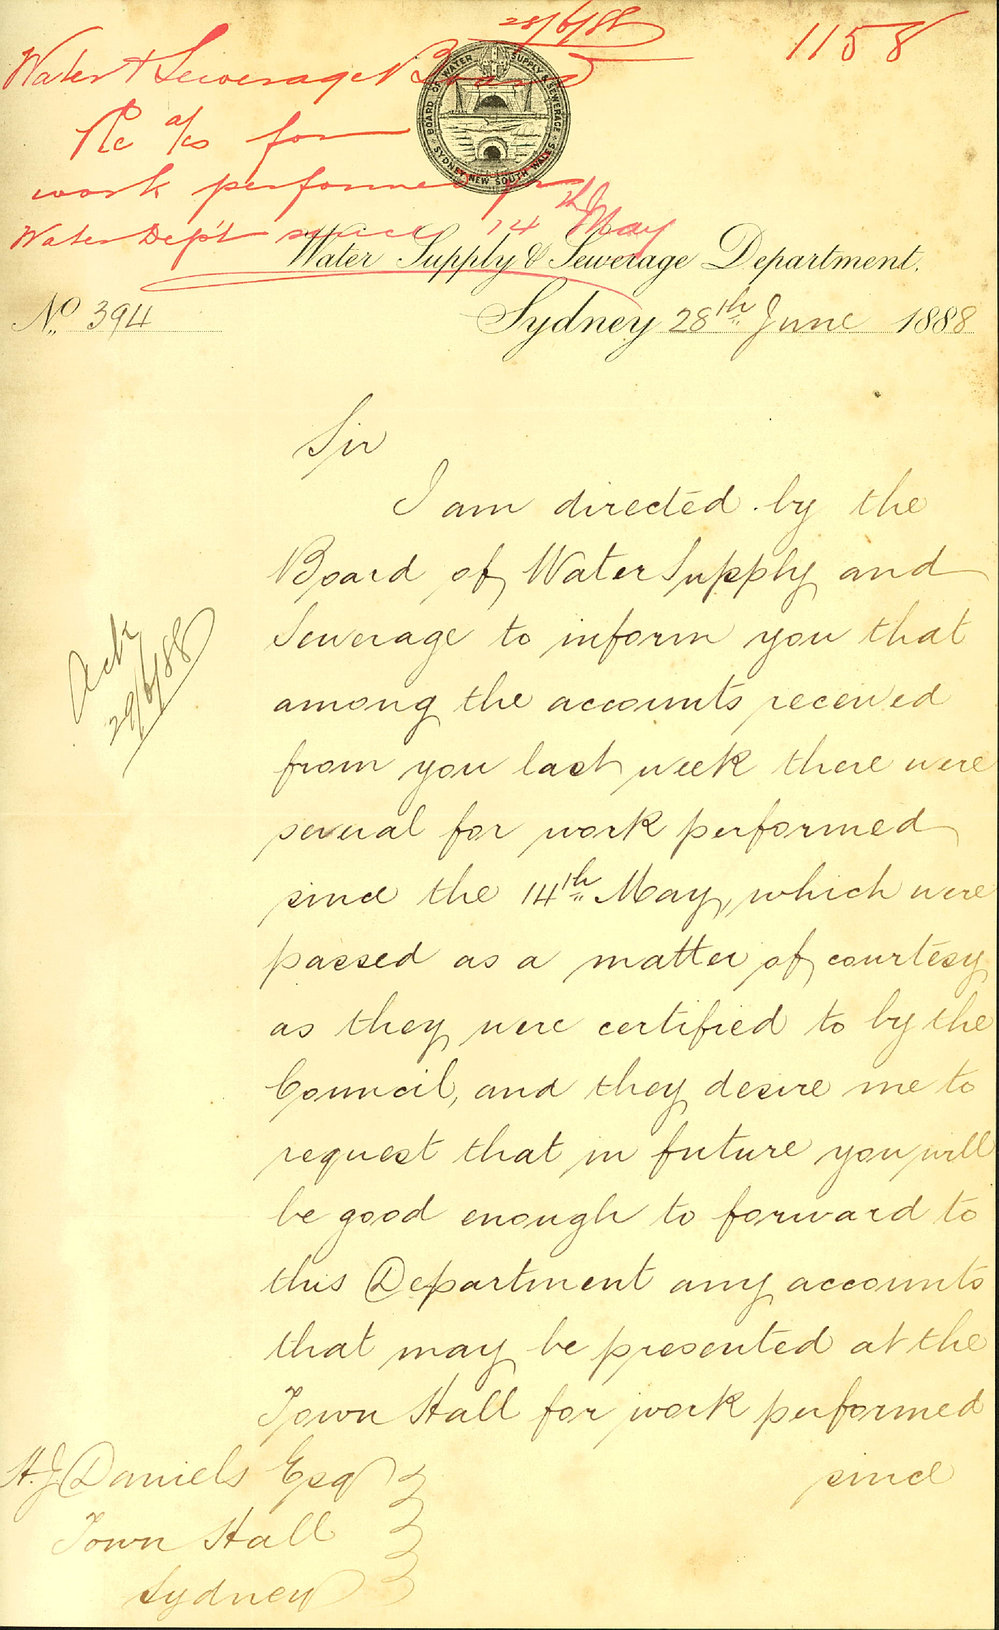 28/6/88
1158
Water & Sewerage Board
Re a/cs for
work performed for
Water Dep't since 14th May
BOARD OF WATER SUPPLY & SEWERAGE
SYDNEY NEW SOUTH WALES
Water Supply & Sewerage Department.
No. 394
Sydney 28th June 1888
Sir
I am directed by the
Board of Water Supply and
Sewerage to inform you that
among the accounts received
from you last week there were
several for work performed
since the 14th May, which were
passed as a matter of courtesy
as they were certified to by the
Council, and they desire me to
request that in future you will
be good enough to forward to
this Department any accounts
that may be presented at the
Town Hall for work performed
since
Ack
29/6/88
H.J. Daniels Esq
Town Hall
Sydney